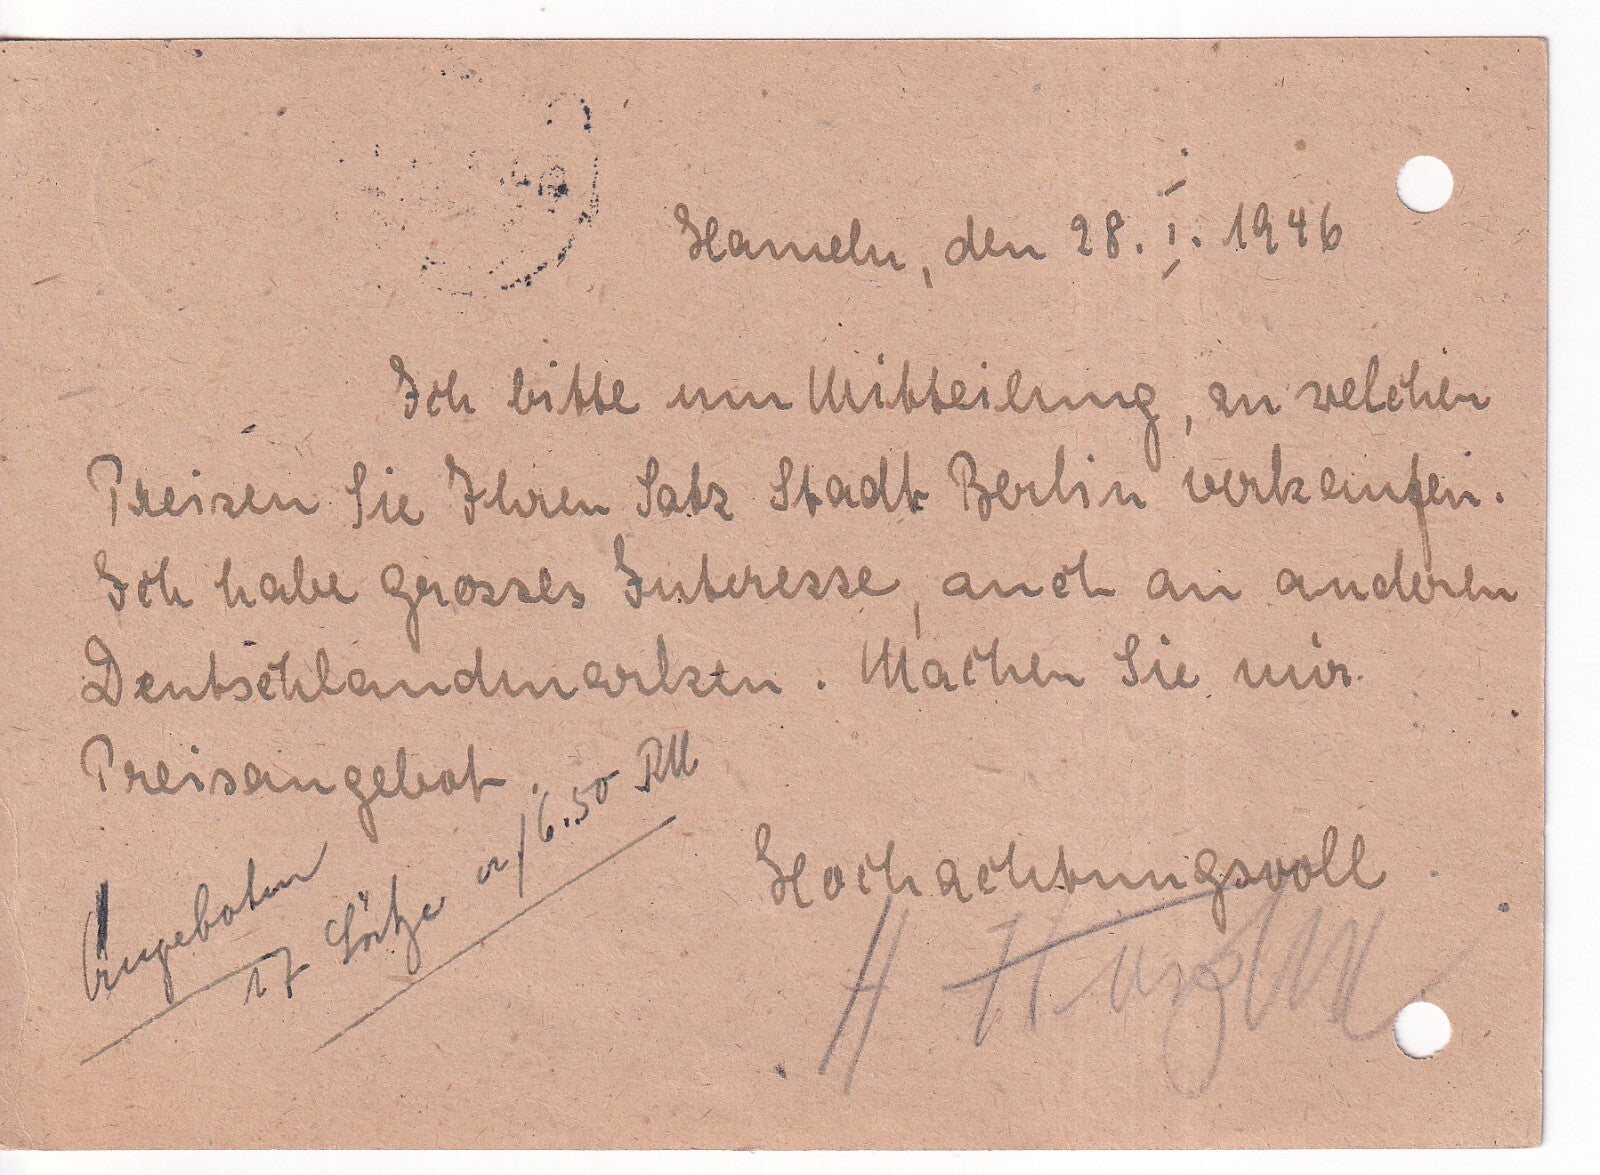 Hameln, den 28. I. 1946
Ich bitte um Mitteilung, zu welchen
Preisen Sie Ihren Satz Stadt Berlin verkaufen.
Ich habe grosses Interesse, auch an anderen
Deutschlandmarken. Machen Sie mir
Preisangebot.
Hochachtungsvoll
H
Angeboten
17 Sätze 6.50 RM